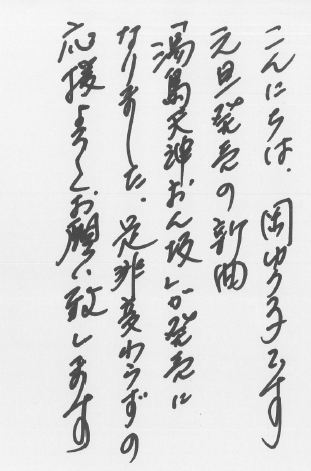 こんにちは、岡ゆう子です
元旦発売の新曲
「湯島天神おんな坂」が発売に
なりました。是非変わらずの
応援よろしくお願い致します